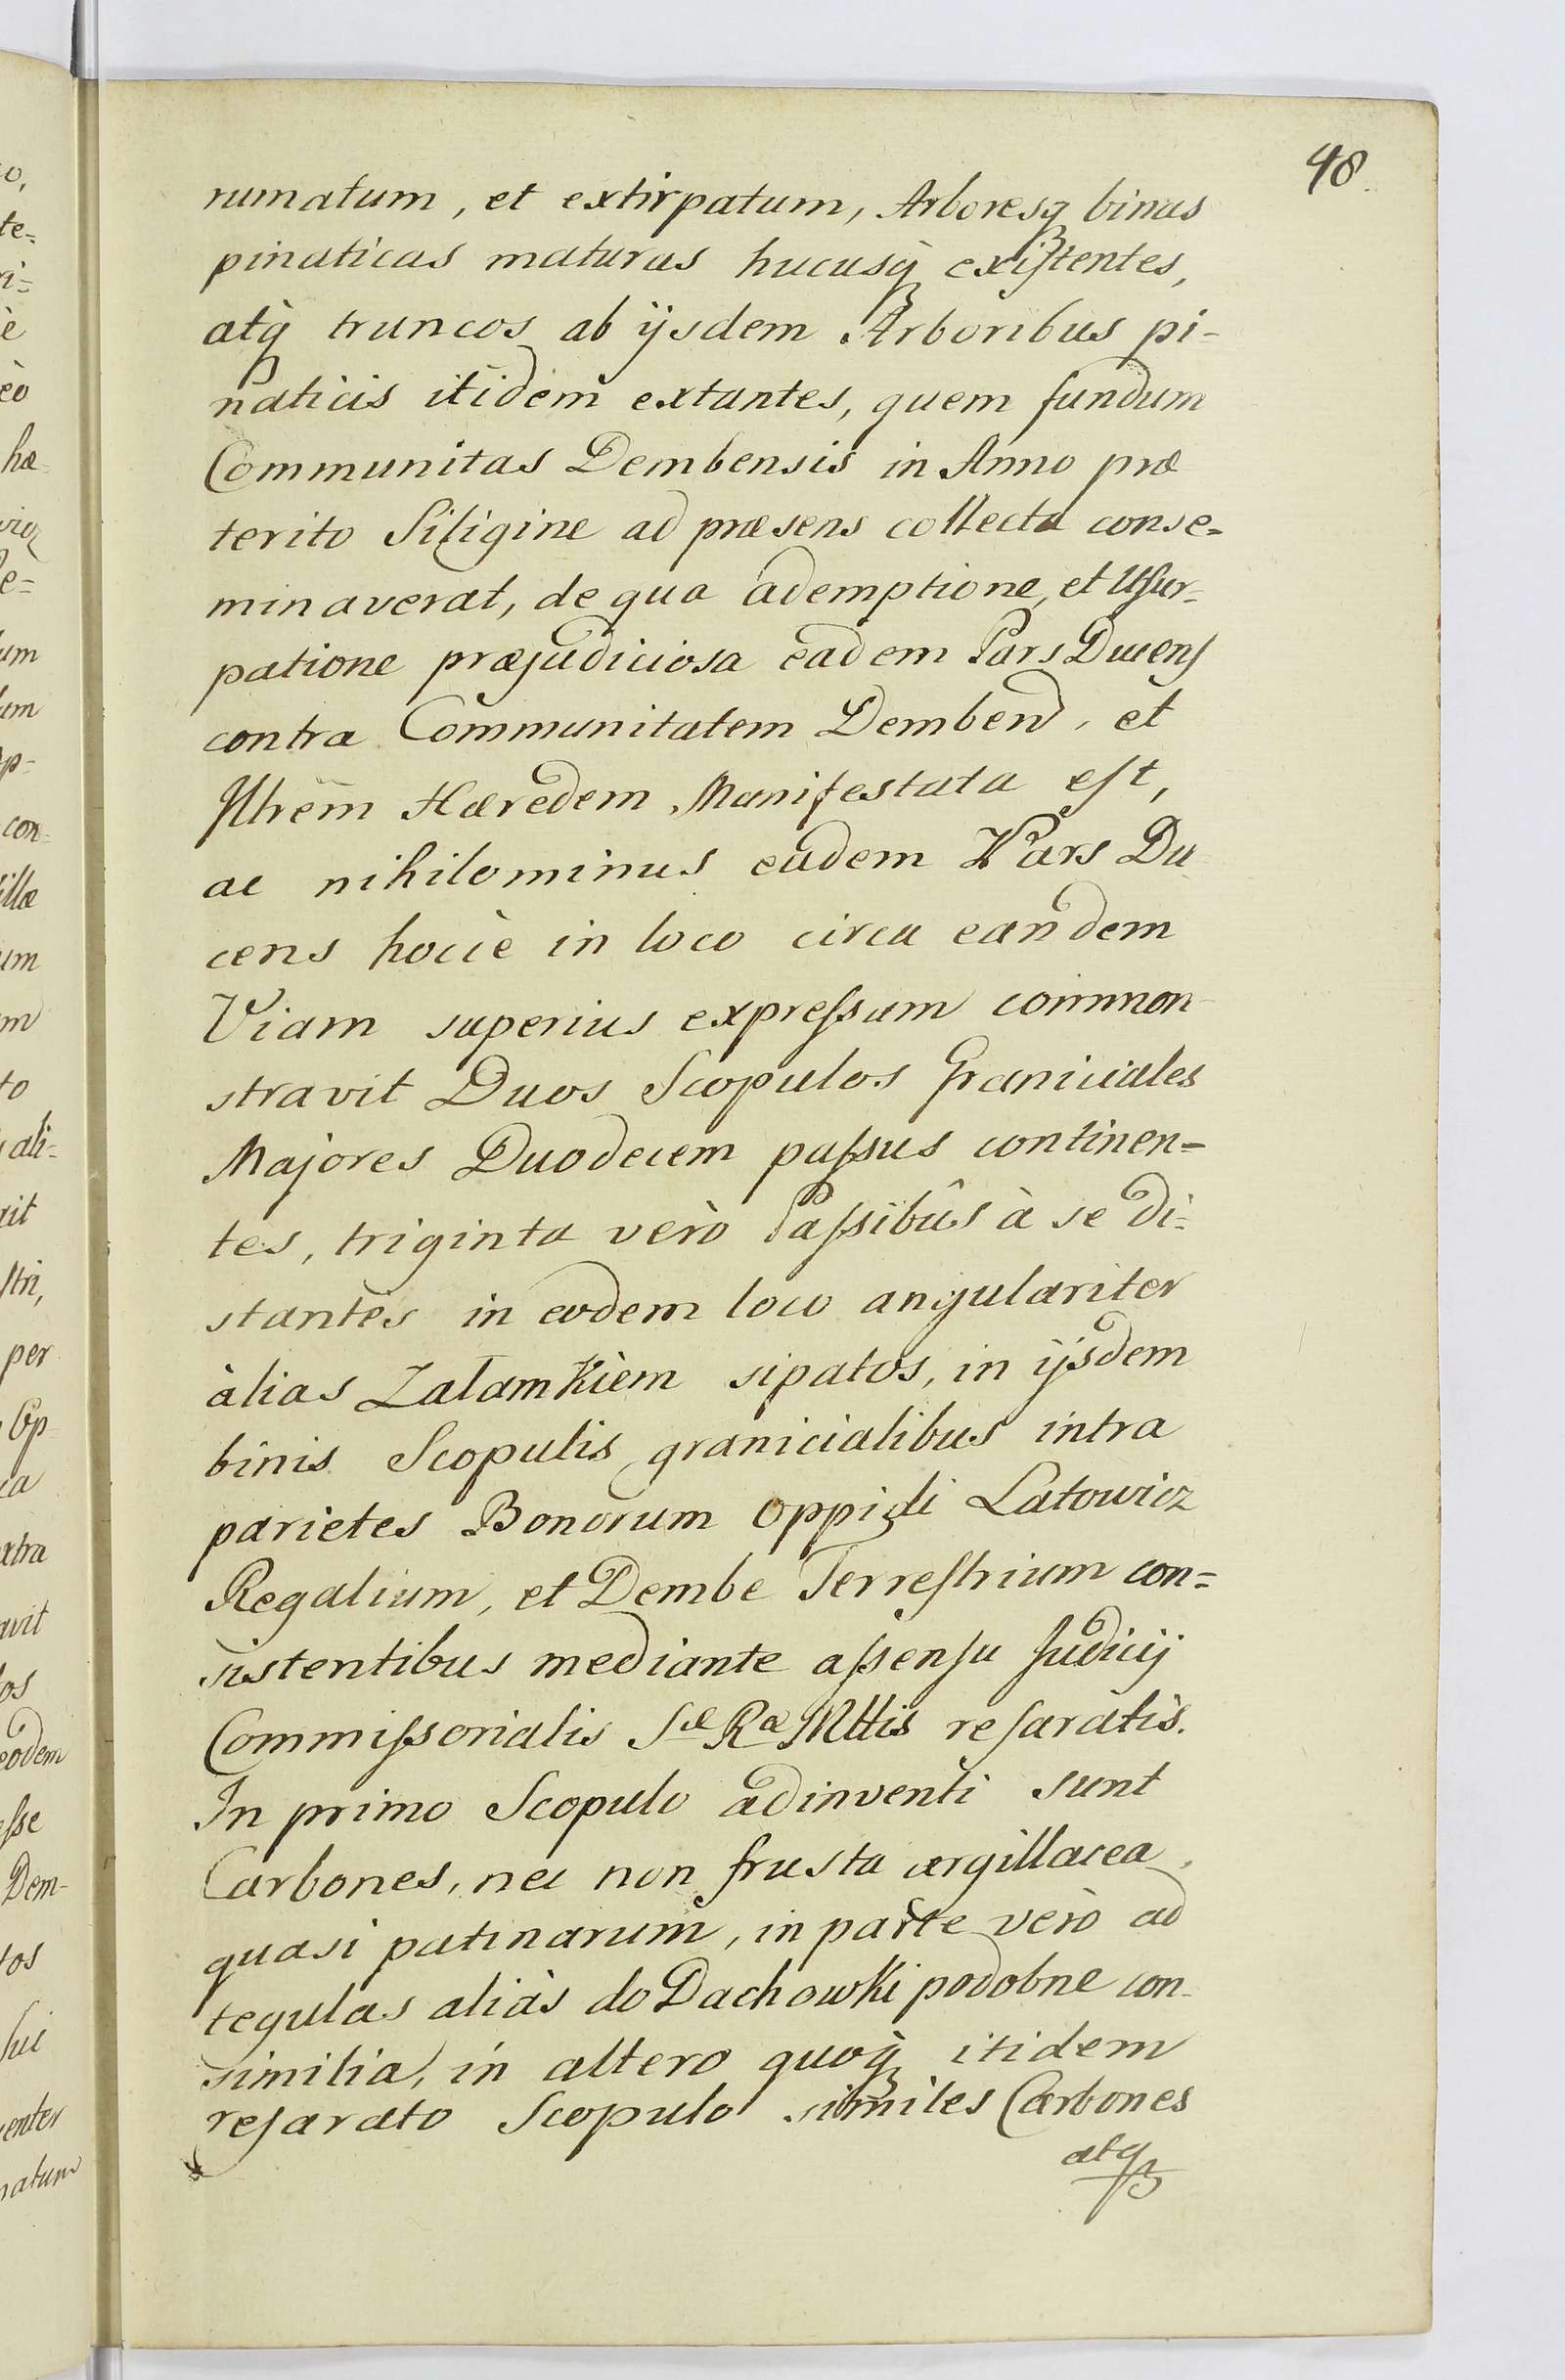 48
rumatum, et extirpatum, Arboresq binas
pinaticas maturas hucusq̀ existentes,
atq̀ truncos ab ijsdem Arboribus pi-
naticis itidem extantes, quem fundum
Communitas Dembensis in Anno præ
terito Siligine ad præsens collecta conse=
minaverat, de qua ademptione, et Usur=
patione præjudiciosa eadem Pars Ducens
contra Communitatem Demben, et
Illrem Hæredem Manifestata est,
ac nihilominus eadem Pars Du
cens hocce in loco circa eandem
Viam superius expressam common
stravit Duos Scopulos Graniciales
Majores Duodecem passus continen=
tes, triginta verò Passibûs à se di=
stantes in eodem loco angulariter
àlias Załamkièm sipatos, in ijsdem
binis Scopulis granicialibus intra
parietes Bonorum Oppidi Latowicz
Regalium, et Dembe Terrestrium con=
sistentibus mediante assensu Judicij
Commissorialis Sæ Ræ Mttis resaratis.
In primo Scopulo adinventi sunt
Carbones, nec non frusta argillacea
quasi patinarum, in parte verò ad
tegulas aliàs do Dachowki podobne con-
similia, in altero quoq̀ itidem
resarato Scopulo similes Carbones
atq